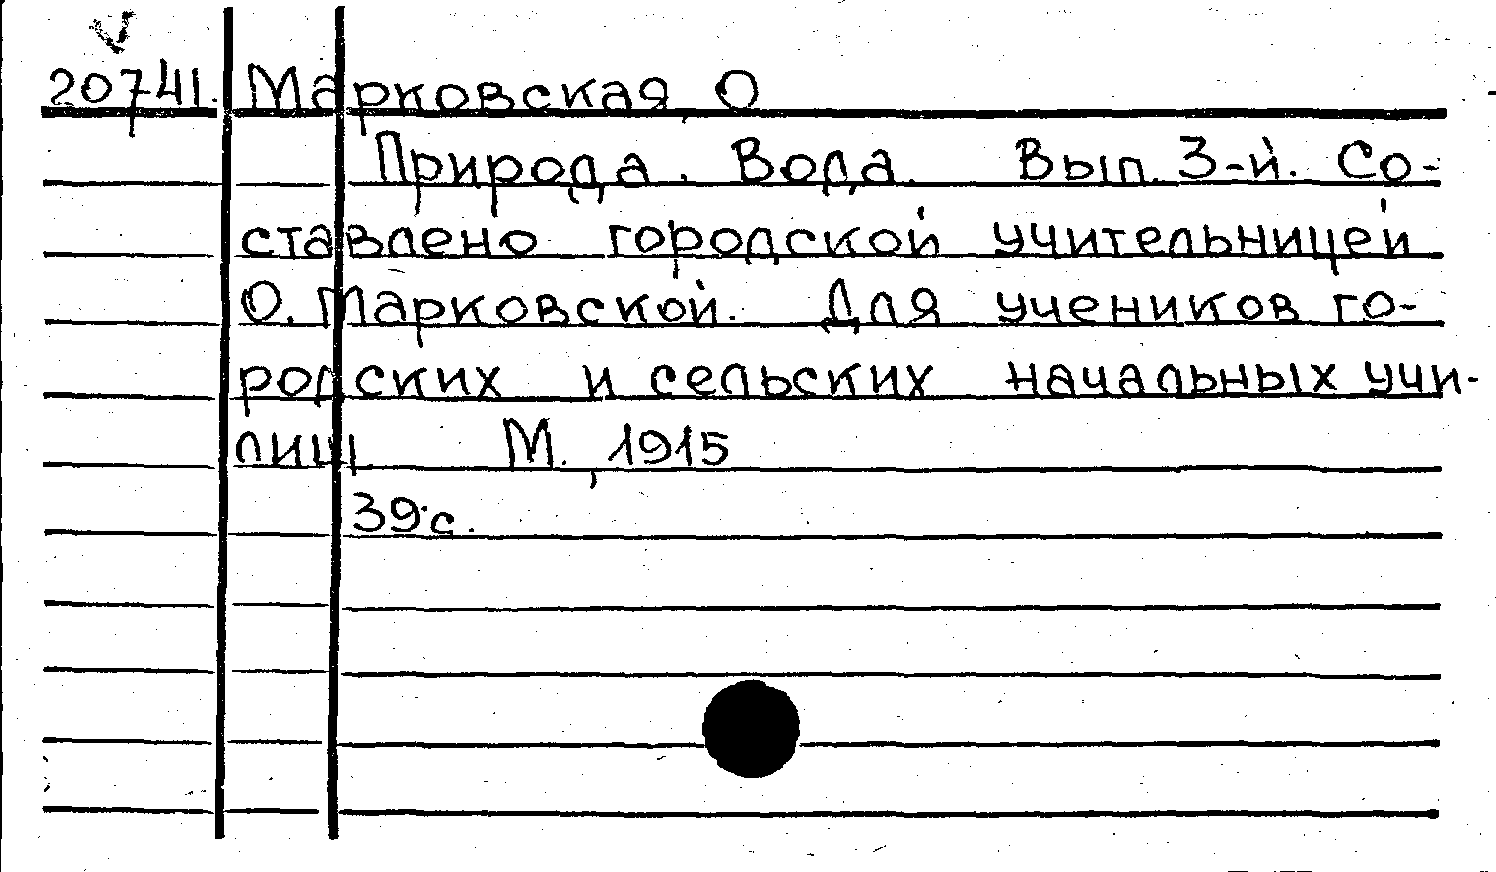 20741. Марковская О
Природа. Вода. Вып. 3-й. Со-
ставлено городской учительницей
О. Марковской. Для учеников го-
родских и сельских начальных учи-
лищ М., 1915
39 с.